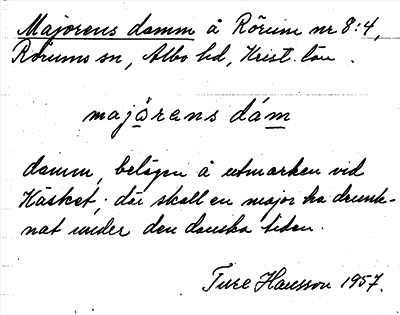 Majorens damm å Rörum nr 8:4,
Rörums sn, Albo hd, Krist. län.
majörens dám
damm, belägen å utmarken vid
Käsket; där skall en major ha drunk-
nat under den danska tiden.
Ture Hansson 1957.